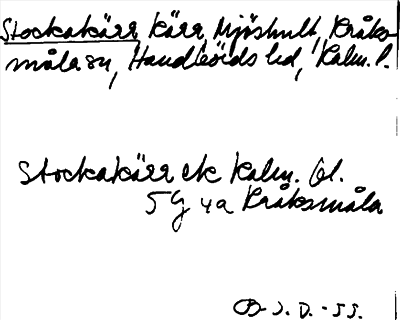 Stockakärr kärr, Mjöshult, Kråks-
måla sn, Handbörds hd, Kalm. l.
Stockakärr ek Kalm. bl.
5G 4a Kråksmåla